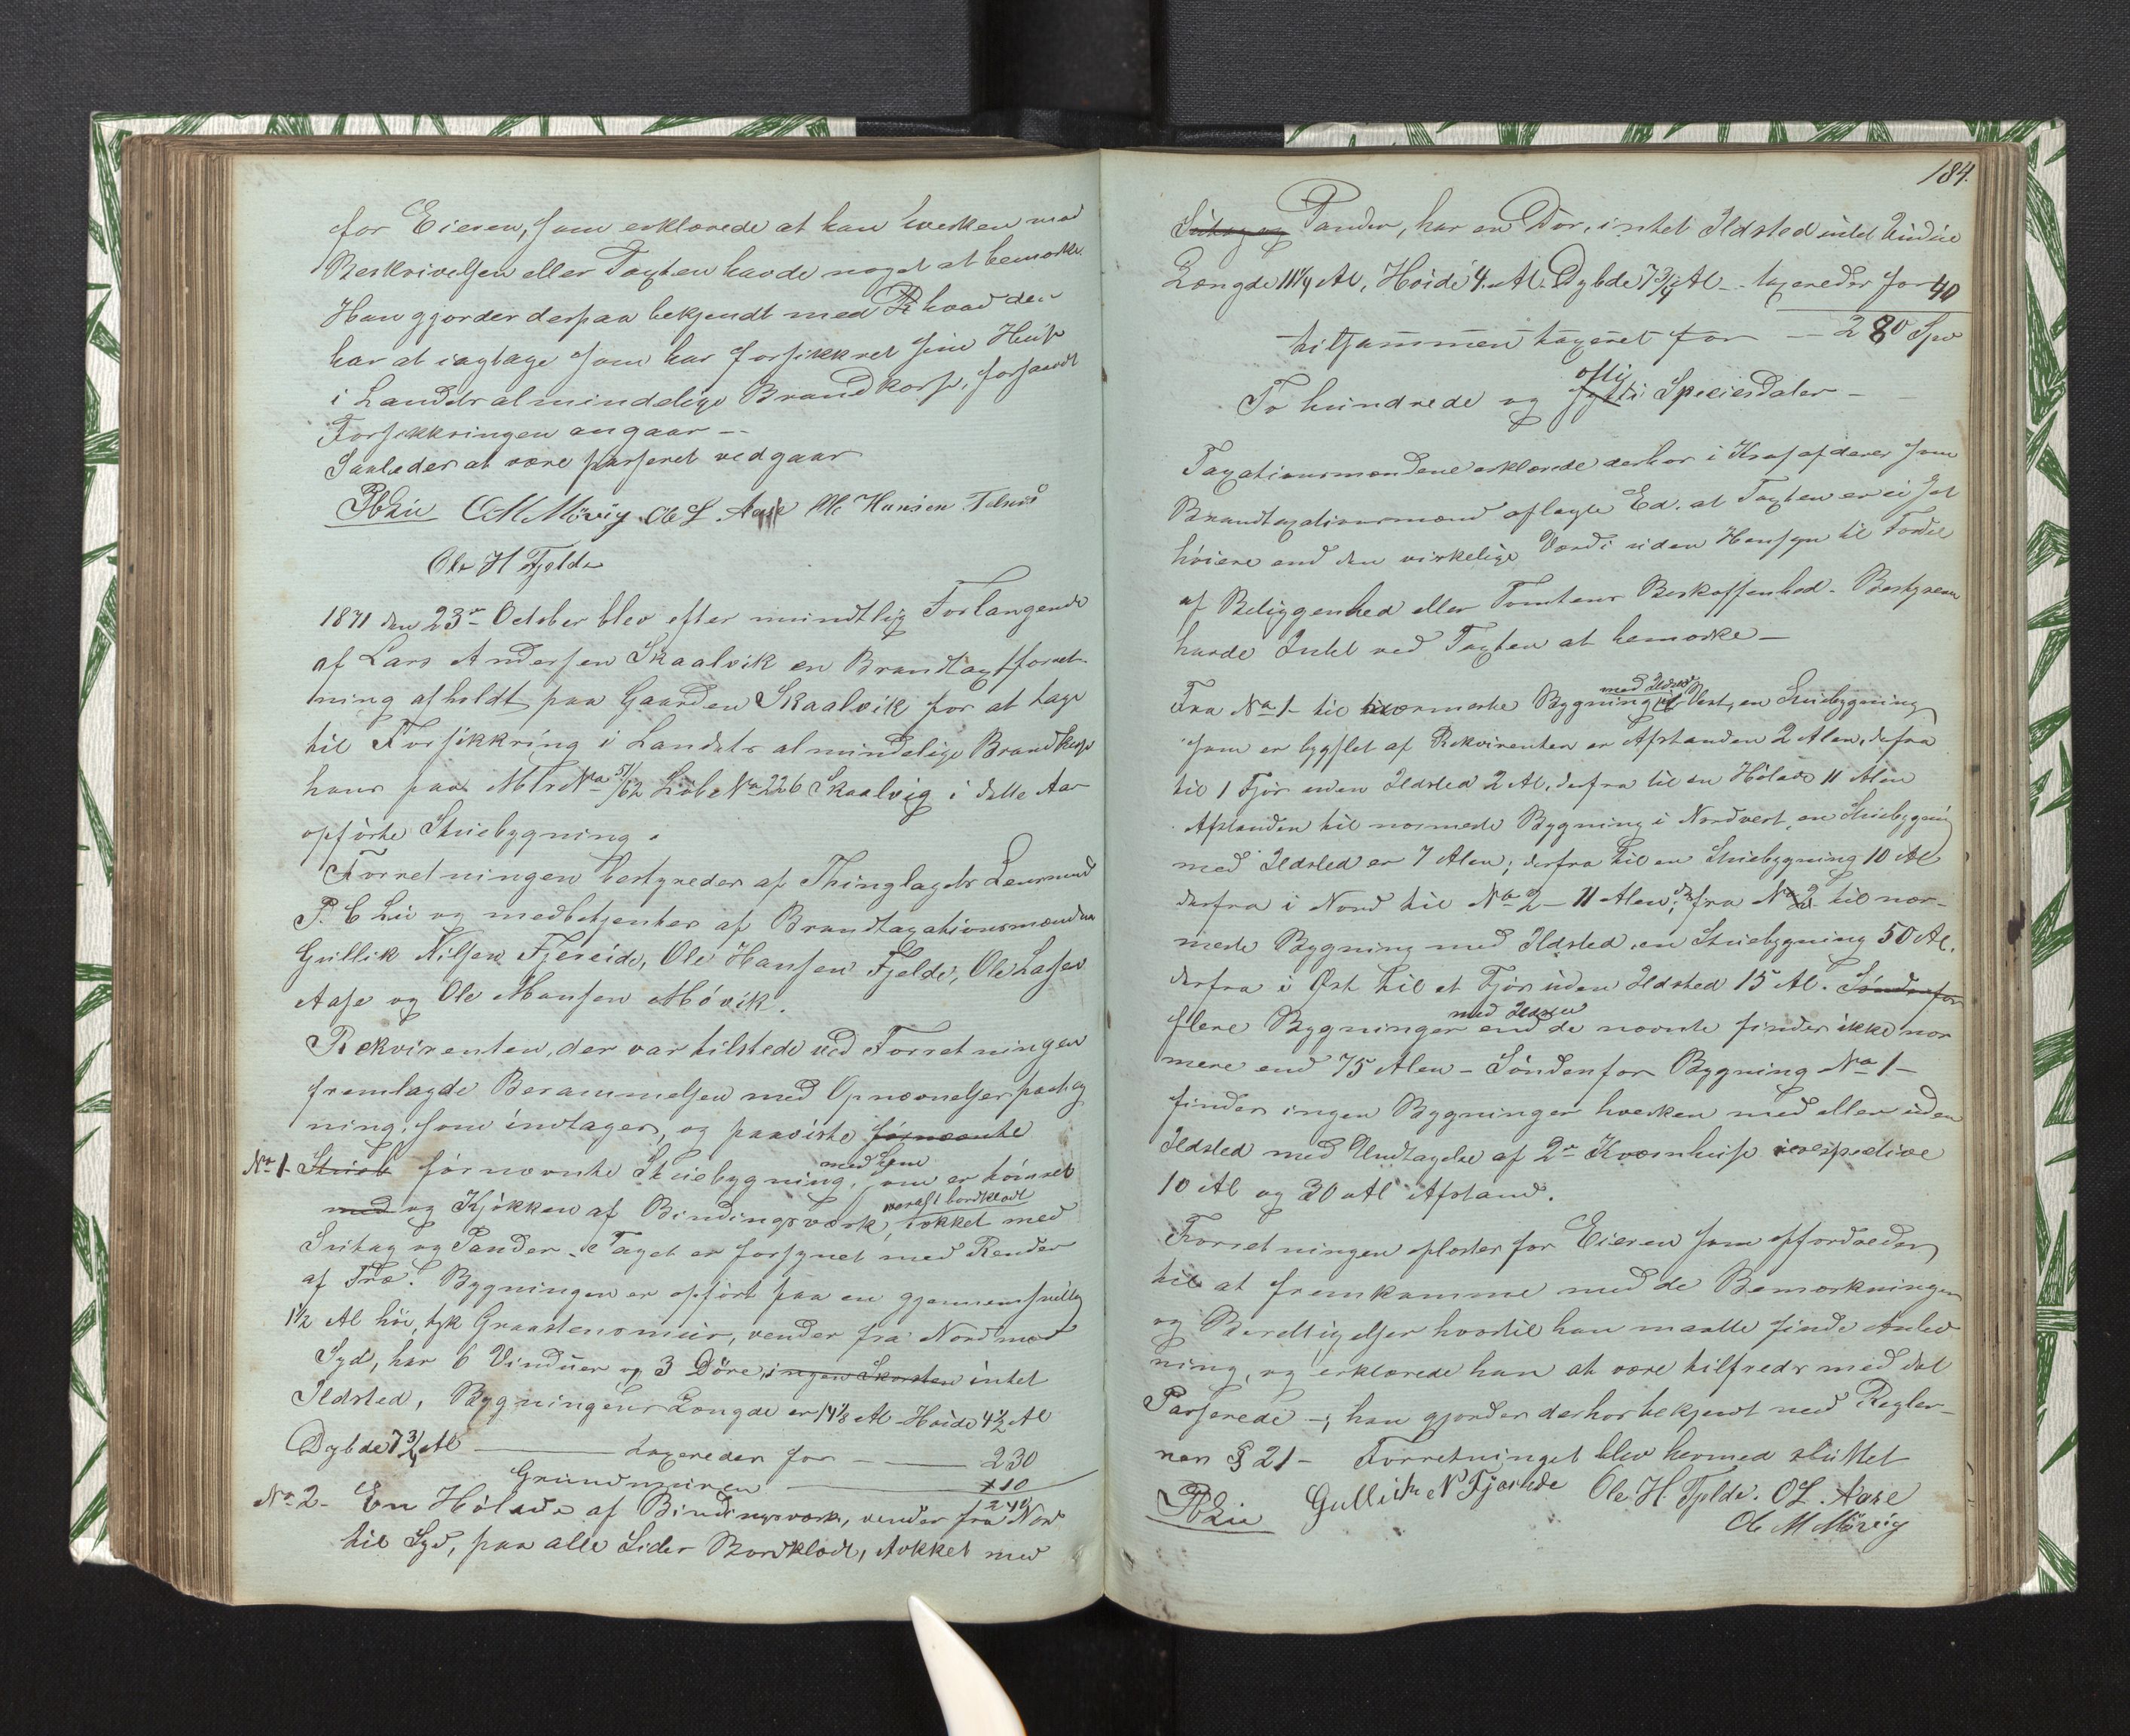 for Eieren, som erklærede at han hverken mod
Beskrivelsen eller Taxten havde noget at bemærke
Han gjordes derpaa bekjendt med hvad den
har at iagtage som har forsikkret sine Huse
i Landets almindelige Brandkasse, forsaavidt
Forsikkringen angaar --
Saaledes at være passeret vedgaar
PbLie O M Mövig Ole L Aase Ole Hansen Telnes
Ole H Fjelde
1871 den 23de October blev efter mundtlig Forlangende
af Lars Andersen Skaalvik en Brandtaxtforret-
ning afholdt paa Gaarden Skaalvik for at tage
til Forsikkring i Landets almindelige Brandkasse
hans paa MtrNo 51/62 LöbeNo 226 Skaalvig i dette Aar
opførte Stuebygning.
Forretningen bestyredes af Thinglagets Lensmand
P. b Lie og medbetjentes af Brandtaxationsmændene
Gullik Nilsen Fjereide, Ole Hansen Fjelde, Ole Lassen
Aase og Ole Monsen Mövik.
Rekvirenten, der var tilstede ved Forretningen
fremlagde Berammelsen med Opnævnelsespaateg
ning, som indtages, og paaviste fornævnte
No 1- Stueb fornævnte Stuebygning, som er tömret
med Svae
med og Kjökken af Bindingsværk, tækket med
overalt bordklædt
Sutag og Pander. Taget er forsynet med Render
af Træ. Bygningen er opført paa en gjennemsnitlig
1½ Al høi, tyk Graastensmuur, vender fra Nord mod
Syd, har 6 Vinduer og 3 Döre, ingen Skorsten intet
Ildsted, Bygningens Længde er 14⅛ Al Høide 4½ Al
Dybde 7¾ Al — taxeredes for — 230
Grundmuren — 10
240
No 2- En Hölade af Bindingsværk, vender fra Nord
til Syd, paa alle Sider Bordklædt, tækket med
184.
Sutag og Pander, har en Dör, intet Ildsted intet Vindue
Længde 11¼ Al, Høide 4. Al. Dybde 7¾ Al -- taxeredes for 40
tilsammen taxeret for — 280 Spd
To hundrede og fyrti Speciesdaler -
otti
Taxationsmændene erklærede derhos i Kraf af deres som
Brandtaxationsmænd aflagte Ed. at Taxten er ei sat
høiere end den virkelige Værdi uden Hensyn til Fordel
af Beliggenhed eller Tomtens Beskaffenhed. Bestyreren
havde Intet ved Taxten at bemærke —
Fra No 1- til nærmeste Bygning med Ildsted i Vest, en Stuebygning
som er bygslet af Rekvirenten er Afstanden 2 Alen, derfra
til 1 Fjös uden Ildsted 2 Al, derfra til en Hölade 11 Alen
Afstanden til nærmeste Bygning i Nordvest, en Stuebygning
med Ildsted er 7 Alen; derfra til en Stuebygning 10 Al
derfra i Nord til No 2 - 11 Alen; fra No 2 til nær-
meste Bygning med Ildsted, en Stuebygning 50 Al.
derfra i Øst til et Fjös uden Ildsted 15 Al. Söndenfor
flere Bygninger med Ildsted end de nævnte findes ikke nær
mere end 75 Alen - Söndenfor Bygning No 1 -
findes ingen Bygninger hverken med eller uden
Ildsted med Undtagelse af 2de Kværnhuse respective
10 Al og 30 Al Afstand.
Forretningen oplæstes for Eieren som opfordredes
til at fremkomme med de Bemærkninger
og Berettigelser hvortil han maatte finde Anled
ning, og erklærede han at være tilfreds med det
Passerede -; han gjordes derhos bekjendt med Regler-
nes § 21 - Forretninget blev hermed sluttet
PbLie Gullik N Fjereide Ole H. Fjelde. O L. Aase
Ole M Mövig